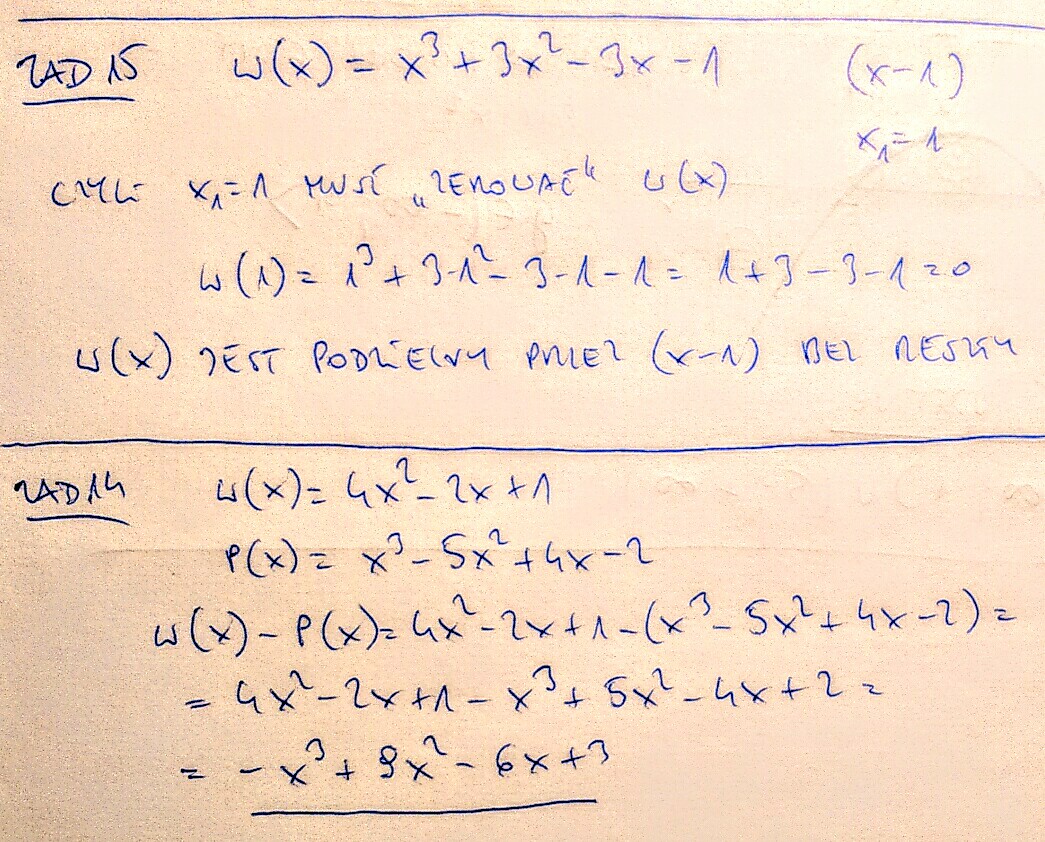 ZAD 15 W(x) = x³ + 3x² - 3x - 1 (x-1)
x₁ = 1
CZYLI x₁ = 1 MUSI „ZEROWAĆ“ W(x)
W(1) = 1³ + 3·1² - 3·1 - 1 = 1 + 3 - 3 - 1 = 0
W(x) JEST PODZIELNY PRZEZ (x-1) BEZ RESZTY
ZAD 14 W(x) = 4x² - 2x + 1
P(x) = x³ - 5x² + 4x - 2
W(x) - P(x) = 4x² - 2x + 1 - (x³ - 5x² + 4x - 2) =
= 4x² - 2x + 1 - x³ + 5x² - 4x + 2 =
= -x³ + 9x² - 6x + 3